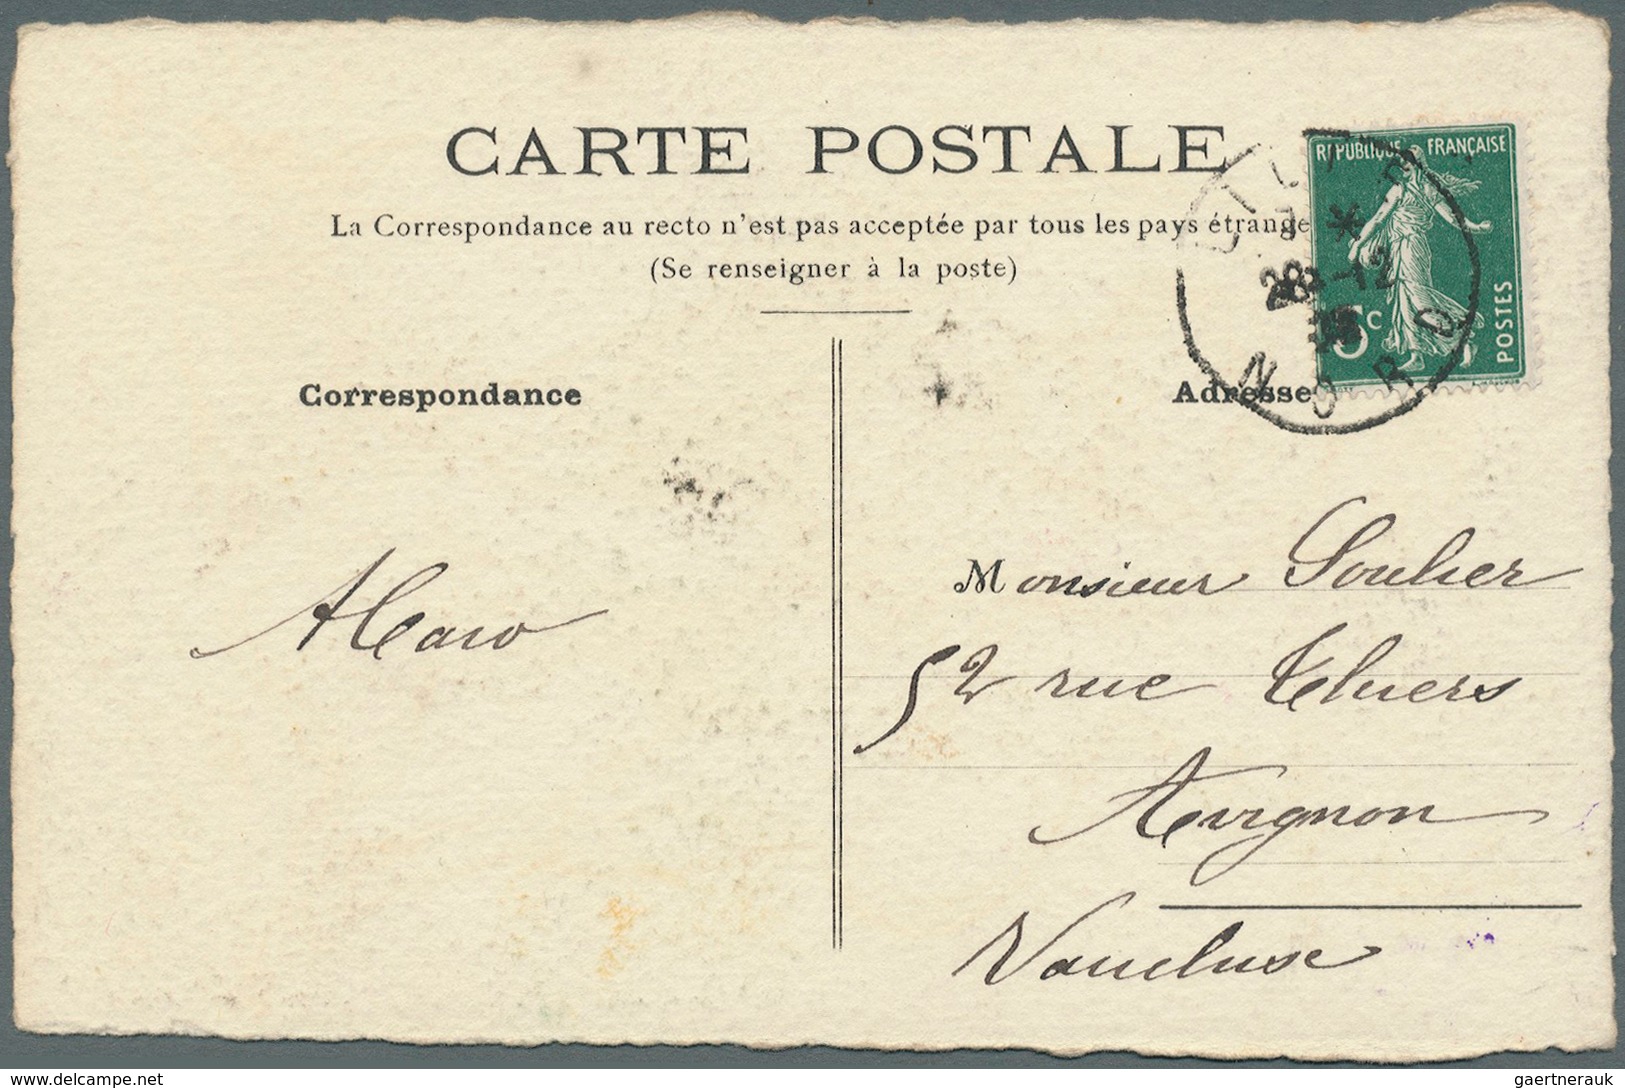 CARTE POSTALE
La Correspondance au recto n'est pas acceptée par tous les pays étrange
(Se renseigner à la poste)
RÉPUBLIQUE FRANÇAISE
5c
POSTES
28-12
NORD
Correspondance
Adresse
Monsieur Soulier
52 rue Thiers
Avignon
Vaucluse
delcampe.net
gaertnerauk